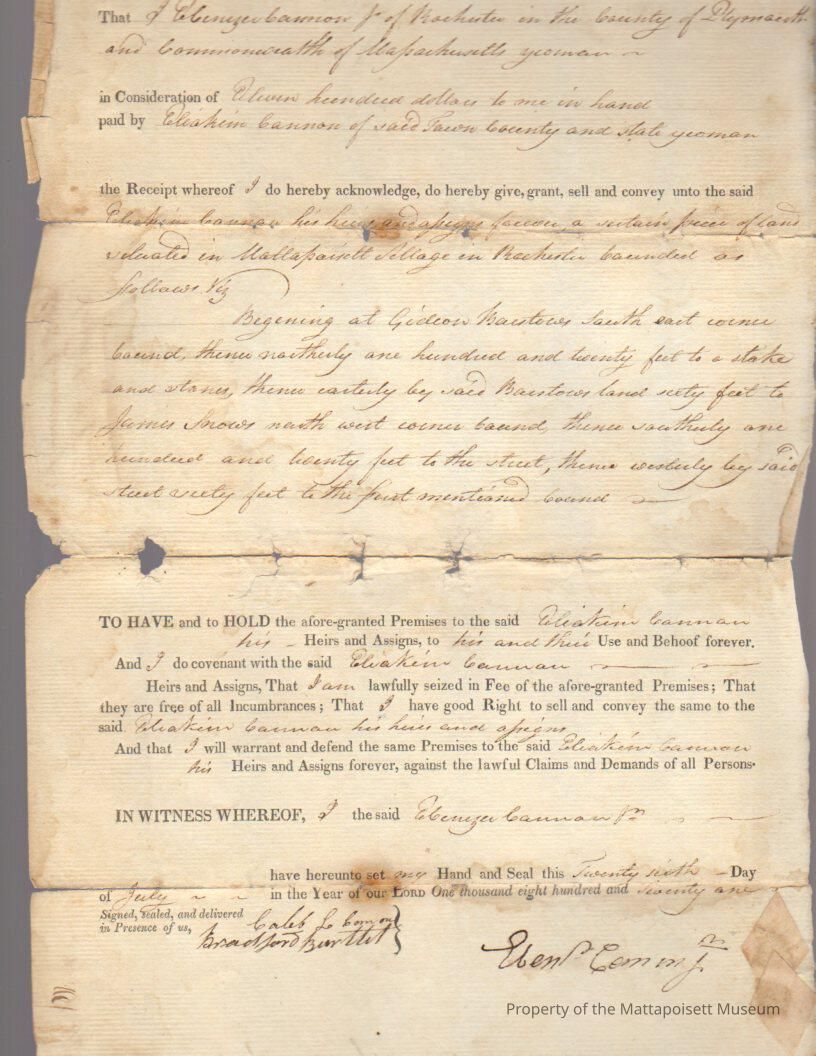 That I Ebenezer Cannon Jr of Rochester in the County of Plymouth
and Commonwealth of Massachusetts yeoman
in Consideration of Eleven hundred dollars to me in hand
paid by Eliakim Cannon of said Town County and state yeoman
the Receipt whereof I do hereby acknowledge, do hereby give, grant, sell and convey unto the said
Eliakim Cannon his heirs and assigns forever, a certain piece of land
situated in Mattapoisett Village in Rochester bounded as
follows Viz
Begening at Gideon Barstows South east corner
bound, thence northerly one hundred and twenty feet to a stake
and stones, thence easterly by said Barstows land sixty feet to
James Snows north west corner bound, thence southerly one
hundred and twenty feet to the street, thence westerly by said
street sixty feet to the first mentioned bound
TO HAVE and to HOLD the afore-granted Premises to the said Eliakim Cannon
his Heirs and Assigns, to his and their Use and Behoof forever.
And I do covenant with the said Eliakim Cannon
Heirs and Assigns, That I am lawfully seized in Fee of the afore-granted Premises; That
they are free of all Incumbrances; That I have good Right to sell and convey the same to the
said Eliakim Cannon his heirs and assigns
And that I will warrant and defend the same Premises to the said Eliakim Cannon
his Heirs and Assigns forever, against the lawful Claims and Demands of all Persons.
IN WITNESS WHEREOF, I the said Ebenezer Cannon Jr
have hereunto set my Hand and Seal this Twenty sixth Day
of July in the Year of our LORD One thousand eight hundred and twenty one
Signed, sealed, and delivered
in Presence of us,
Caleb Cannon
Bradford Bartlet
Ebenr Cannon Jr
Property of the Mattapoisett Museum